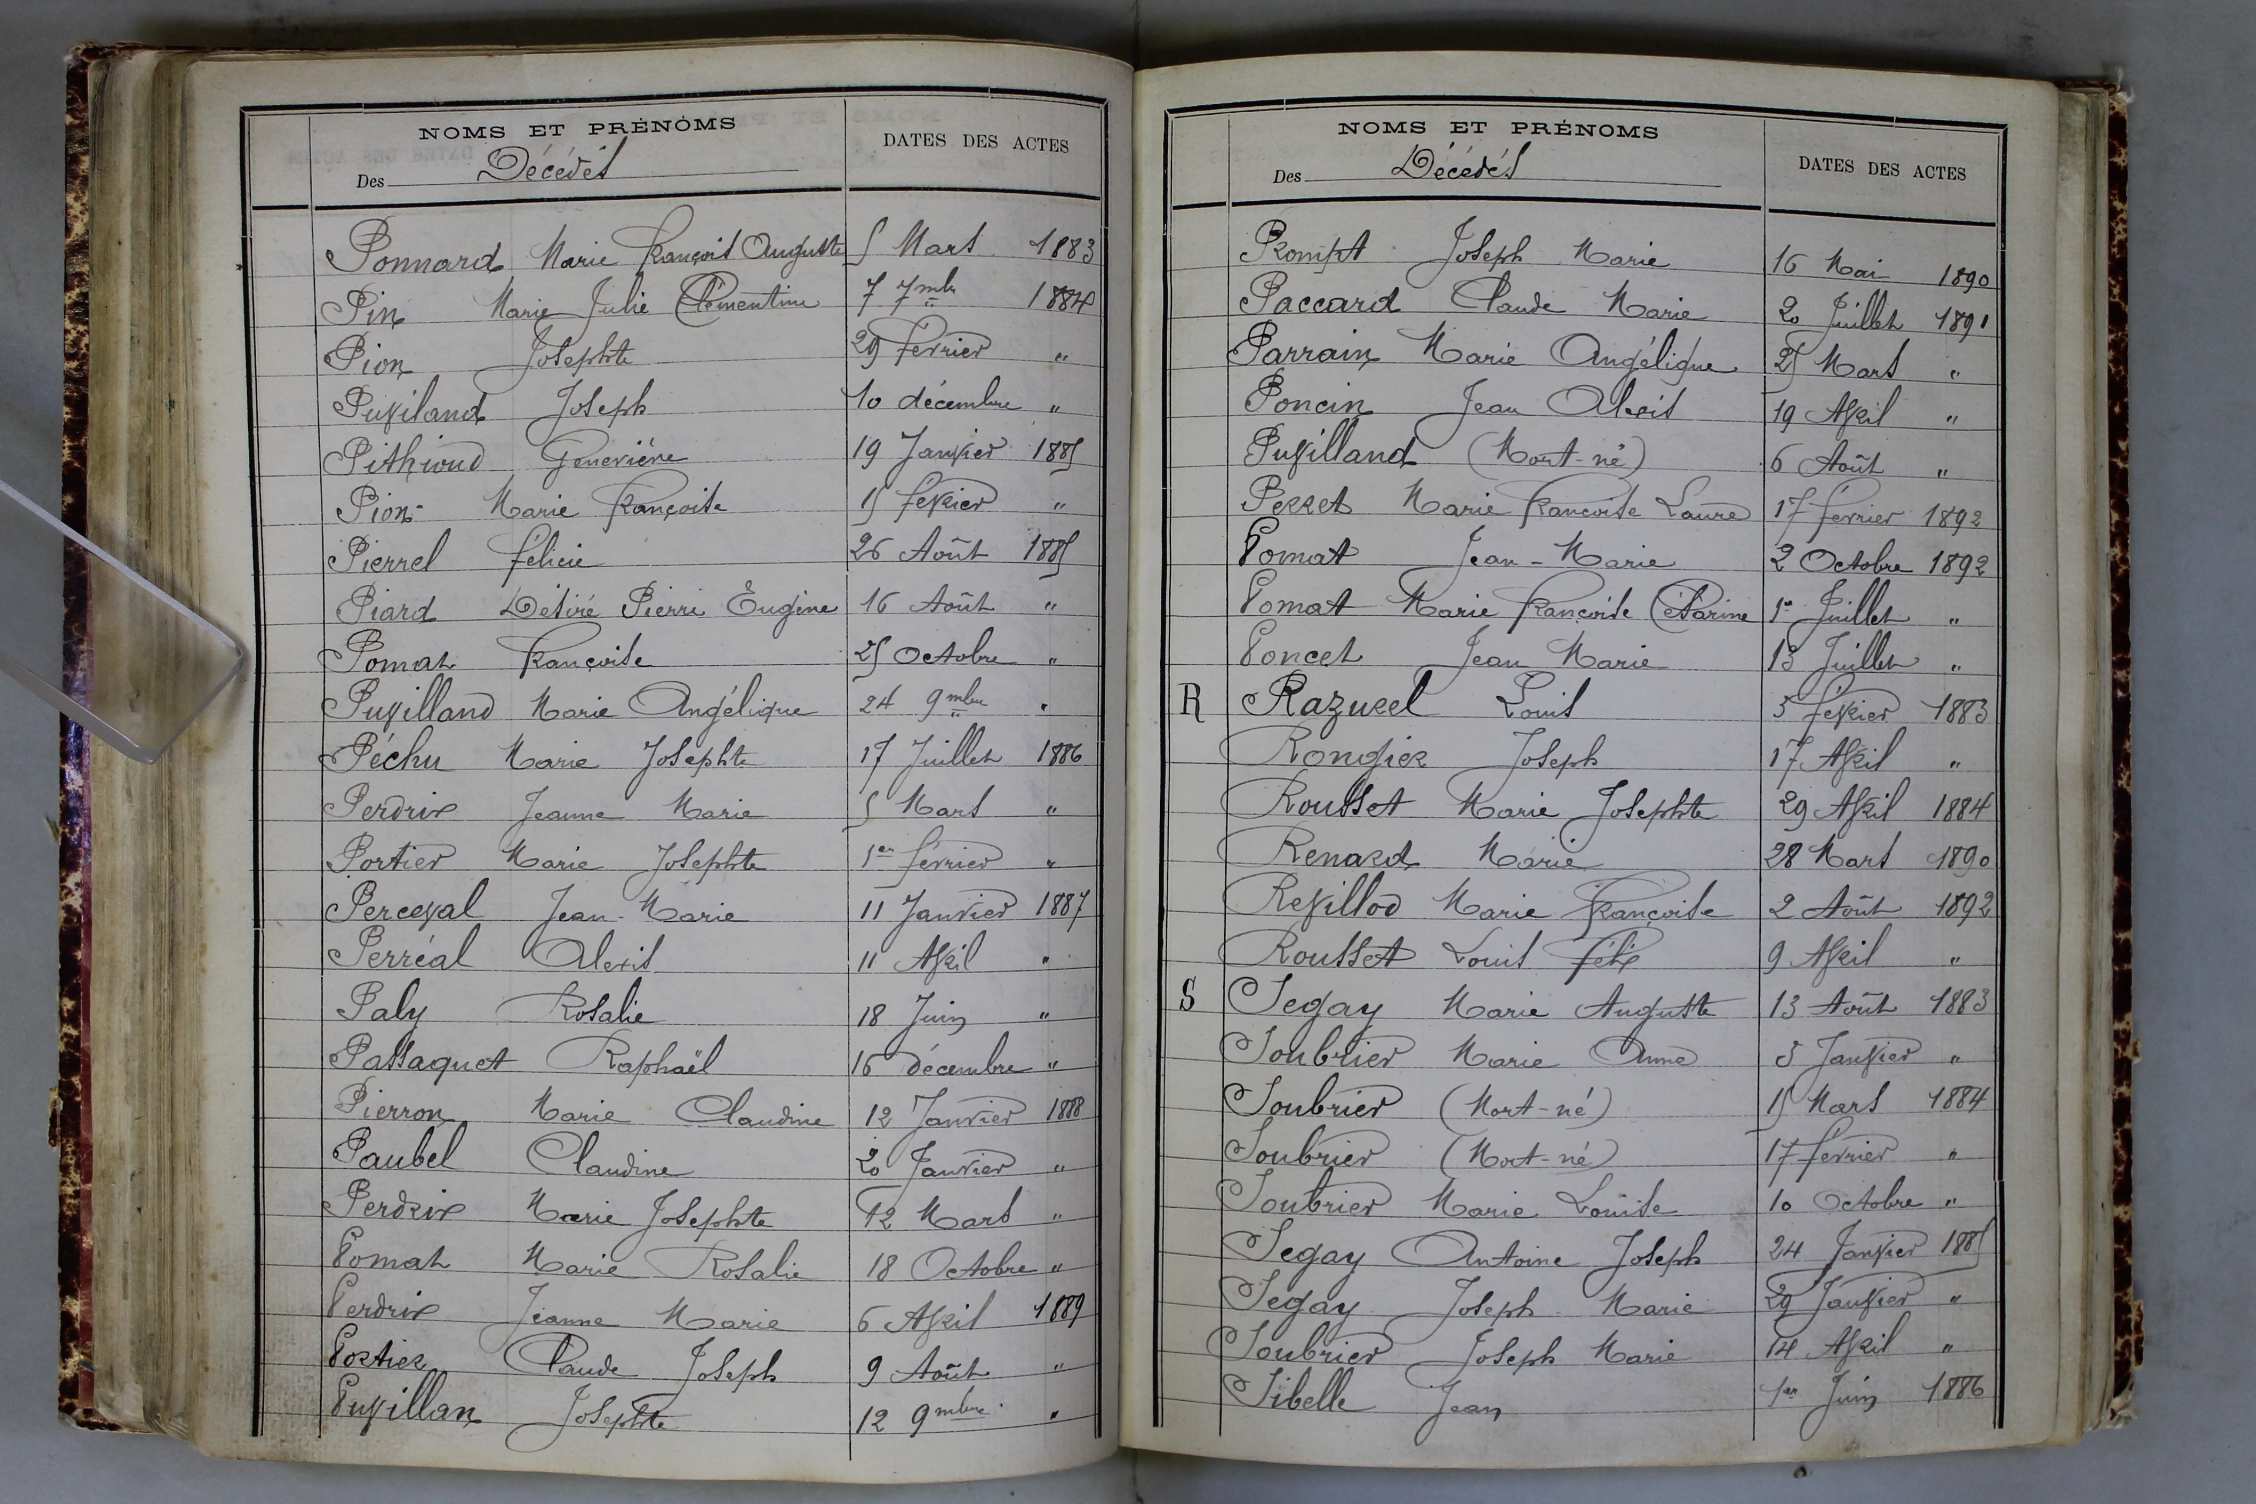 NOMS ET PRÉNOMS
Des Décédés
DATES DES ACTES
Ponnard Marie François Auguste 5 Mars 1883
Pin Marie Julie Clémentine 7 7mbre 1884
Pion Josephte 29 Février "
Puvilland Joseph 10 décembre "
Pithioud Geneviève 19 Janvier 1885
Pion Marie Françoise 15 février "
Pierrel félicie 26 Août 1885
Piard Désiré Pierre Eugène 16 Août "
Pomat Françoise 25 Octobre "
Puvilland Marie Angélique 24 9mbre "
Péchu Marie Josephte 17 Juillet 1886
Perdrix Jeanne Marie 5 Mars "
Portier Marie Josephte 1er février "
Perceval Jean-Marie 11 Janvier 1887
Perréal Alexis 11 Avril "
Paly Rosalie 18 Juin "
Passaquet Raphaël 16 décembre "
Pierron Marie Claudine 12 Janvier 1888
Paubel Claudine 20 Janvier "
Perdrix Marie Josephte 12 Mars "
Pomat Marie Rosalie 18 Octobre "
Perdrix Jeanne Marie 6 Avril 1889
Portier Claude Joseph 9 Août "
Puvillan Josephte 12 9mbre "
NOMS ET PRÉNOMS
Des Décédés
DATES DES ACTES
Prompt Joseph Marie 16 Mai 1890
Paccard Claude Marie 20 Juillet 1891
Parrain Marie Angélique 25 Mars "
Poncin Jean Alexis 19 Avril "
Puvilland (Mort-né) 6 Août "
Perret Marie Françoise Laure 17 février 1892
Pomat Jean-Marie 2 Octobre 1892
Pomat Marie Françoise Césarine 1er Juillet "
Poncet Jean Marie 13 Juillet "
R Razurel Louis 5 février 1883
Rongier Joseph 17 Avril "
Rousset Marie Josephte 29 Avril 1884
Renard Marie 28 Mars 1890
Revillod Marie Françoise 2 Août 1892
Rousset Louis Félix 9 Avril "
S Segay Marie Auguste 13 Août 1883
Soubrier Marie Anne 5 Janvier "
Soubrier (Mort-né) 15 Mars 1884
Soubrier (Mort-né) 17 février "
Soubrier Marie Louise 10 Octobre "
Segay Antoine Joseph 24 Janvier 1885
Segay Joseph Marie 29 Janvier "
Soubrier Joseph Marie 14 Avril "
Sibelle Jean 1er Juin 1886